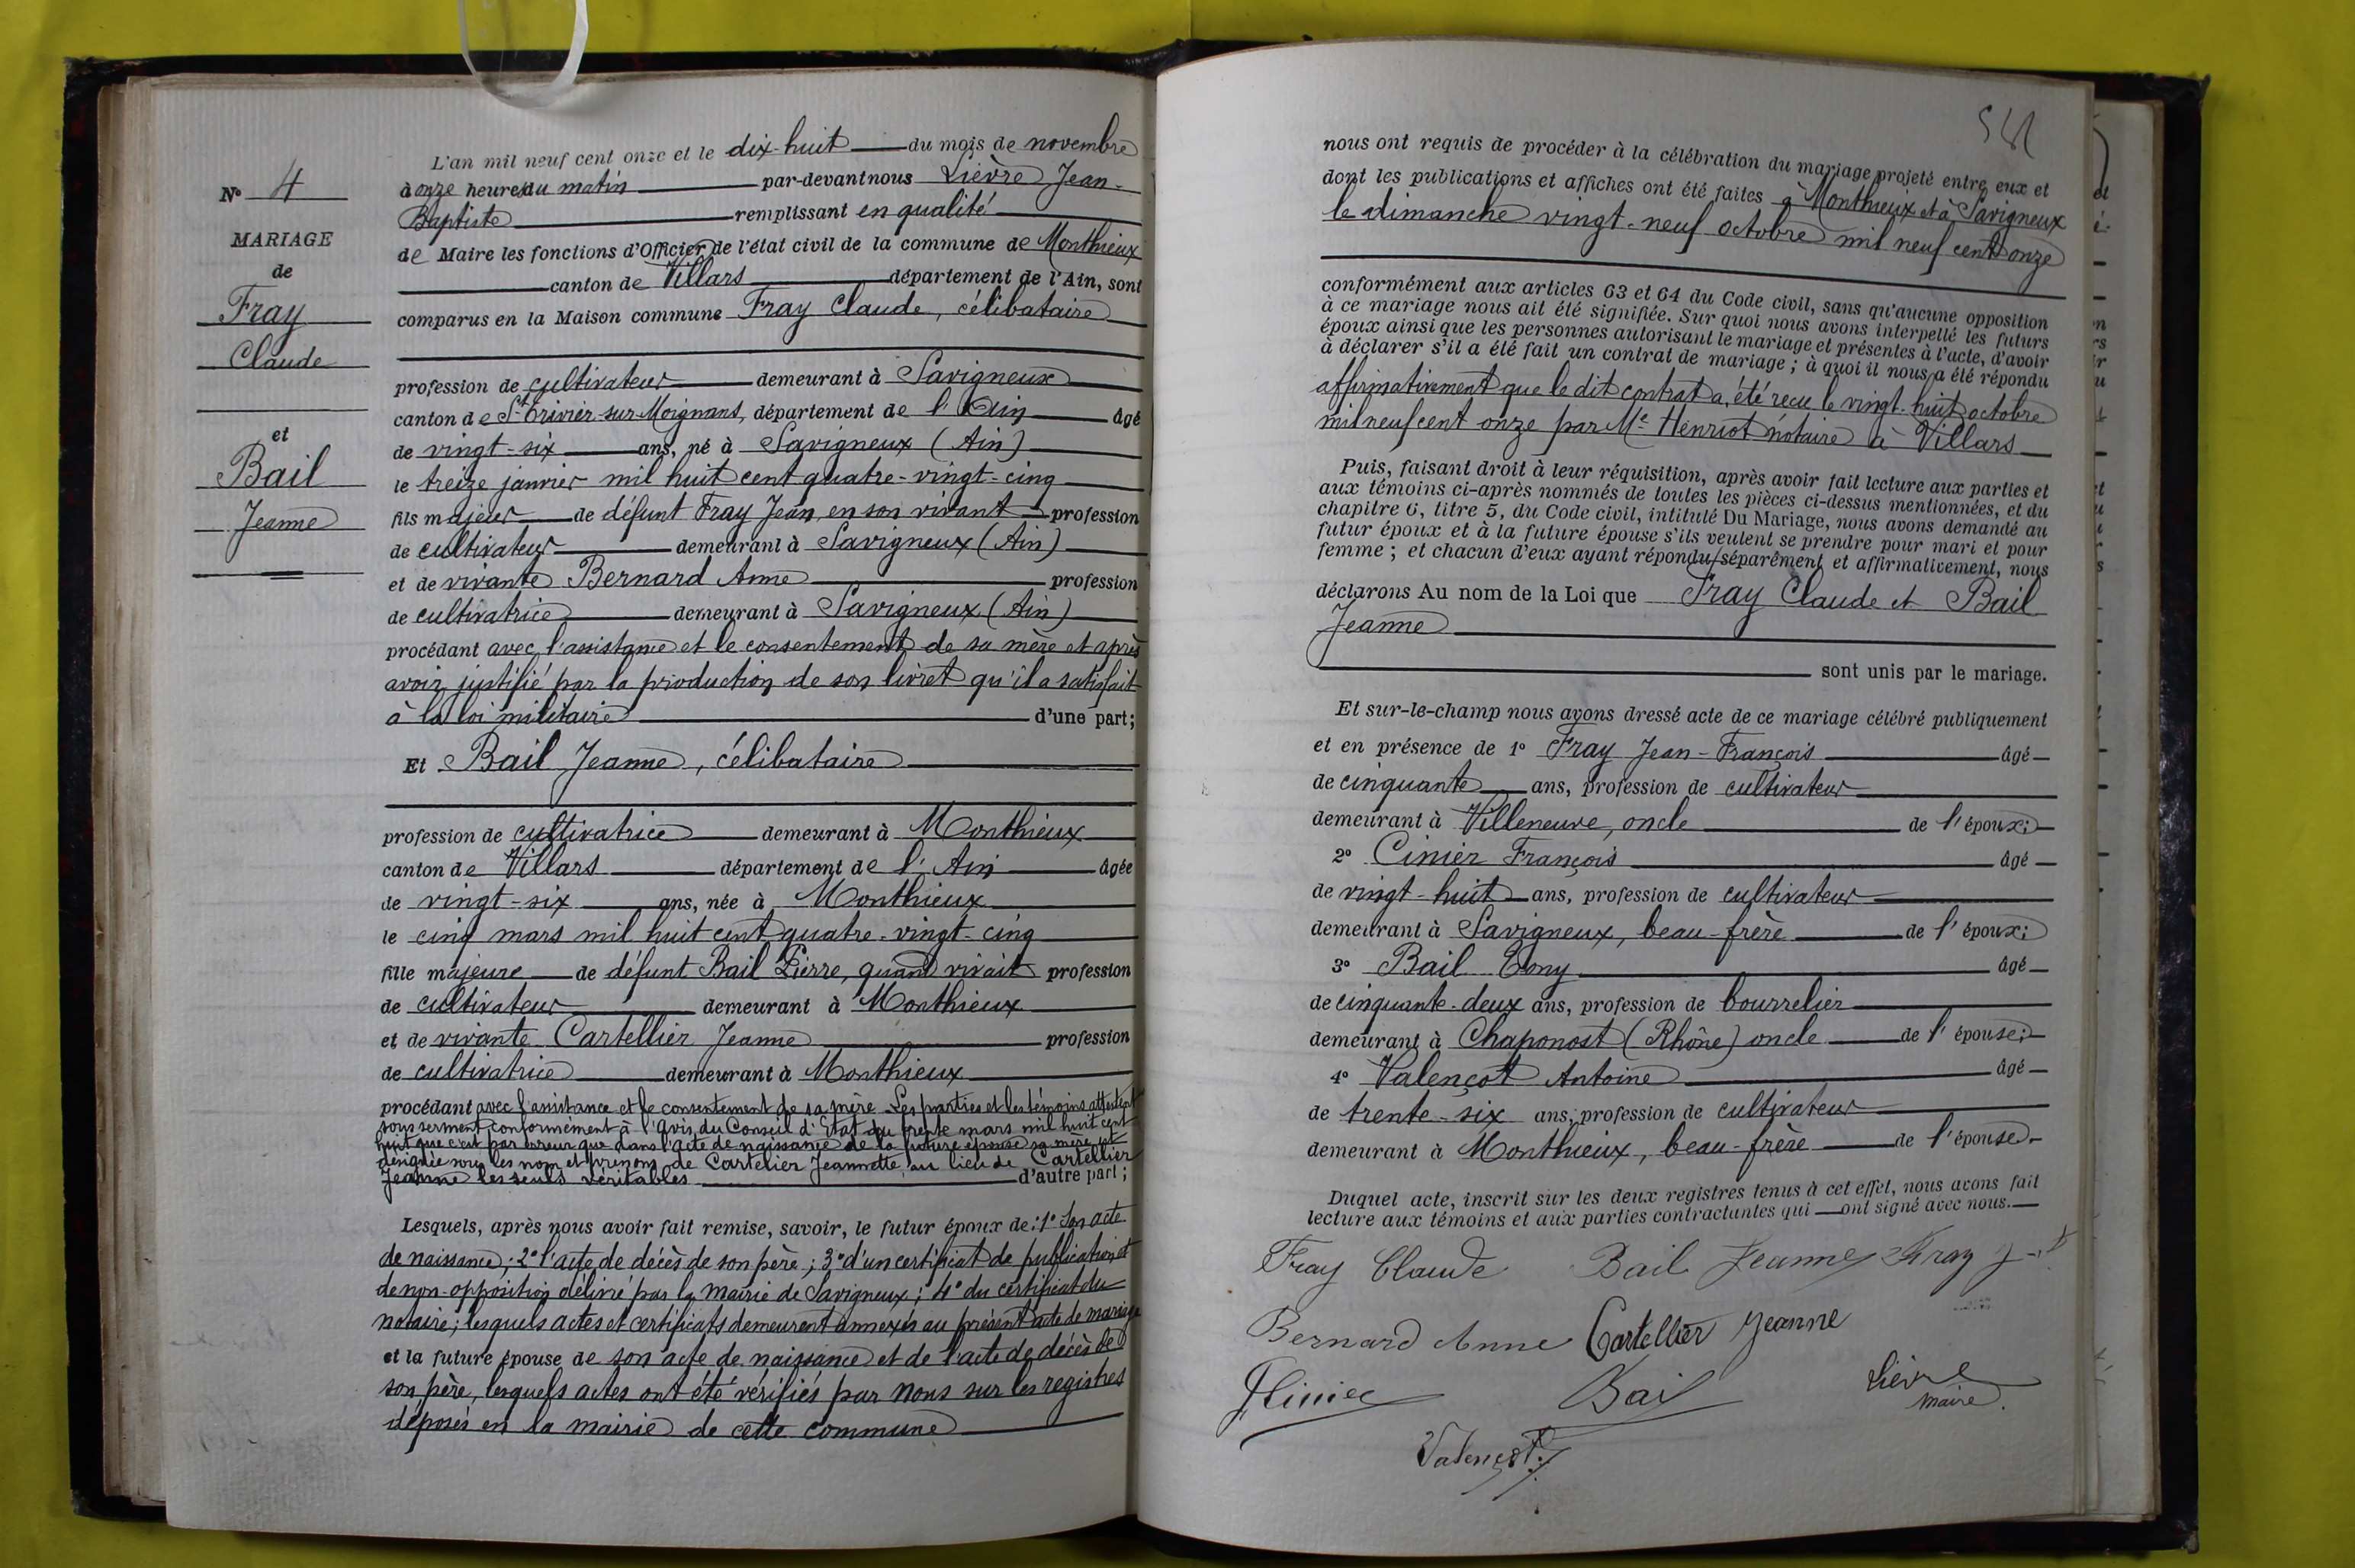 N° 4
MARIAGE
de
Fray
Claude
et
Bail
Jeanne
L'an mil neuf cent onze et le dix-huit du mois de novembre
à onze heures du matin par-devant nous Lièvre Jean-
Baptiste remplissant en qualité
de Maire les fonctions d'Officier de l'état civil de la commune de Monthieux
canton de Villars département de l'Ain, sont
comparus en la Maison commune Fray Claude, célibataire
profession de cultivateur demeurant à Savigneux
canton de St Trivier-sur-Moignans, département de l'Ain âgé
de vingt-six ans, né à Savigneux (Ain)
le treize janvier mil huit cent quatre-vingt-cinq
fils majeur de défunt Fray Jean, en son vivant profession
de cultivateur demeurant à Savigneux (Ain)
et de vivante Bernard Anne profession
de cultivatrice demeurant à Savigneux (Ain)
procédant avec l'assistance et le consentement de sa mère et après
avoir justifié par la production de son livret qu'il a satisfait
à la loi militaire d'une part;
Et Bail Jeanne, célibataire
profession de cultivatrice demeurant à Monthieux
canton de Villars département de l'Ain âgée
de vingt-six ans, née à Monthieux
le cinq mars mil huit cent quatre-vingt-cinq
fille majeure de défunt Bail Pierre, quand vivait profession
de cultivateur demeurant à Monthieux
et de vivante Cartellier Jeanne profession
de cultivatrice demeurant à Monthieux
procédant avec l'assistance et le consentement de sa mère. Les parties et les témoins attestent
sous serment, conformément à l'avis du Conseil d'Etat du trente mars mil huit cent
huit que c'est par erreur que dans l'acte de naissance de la future épouse sa mère est
désignée sous les nom et prénoms de Cartelier Jeannette au lieu de Cartellier
Jeanne les seuls véritables d'autre part;
Lesquels, après nous avoir fait remise, savoir, le futur époux de: 1° Son acte
de naissance; 2° l'acte de décès de son père; 3° d'un certificat de publication et
de non-opposition délivré par la mairie de Savigneux; 4° du certificat du
notaire; lesquels actes et certificats demeurent annexés au présent acte de mariage
et la future épouse de son acte de naissance et de l'acte de décès de
son père, lesquels actes ont été vérifiés par nous sur les registres
déposés en la mairie de cette commune
nous ont requis de procéder à la célébration du mariage projeté entre eux et
dont les publications et affiches ont été faites à Monthieux et à Savigneux
le dimanche vingt-neuf octobre mil neuf cent onze
conformément aux articles 63 et 64 du Code civil, sans qu'aucune opposition
à ce mariage nous ait été signifiée. Sur quoi nous avons interpellé les futurs
époux ainsi que les personnes autorisant le mariage et présentes à l'acte, d'avoir
à déclarer s'il a été fait un contrat de mariage; à quoi il nous a été répondu
affirmativement que le dit contrat a été reçu le vingt-huit octobre
mil neuf cent onze par Me Henriot notaire à Villars
Puis, faisant droit à leur réquisition, après avoir fait lecture aux parties et
aux témoins ci-après nommés de toutes les pièces ci-dessus mentionnées, et du
chapitre 6, titre 5, du Code civil, intitulé Du Mariage, nous avons demandé au
futur époux et à la future épouse s'ils veulent se prendre pour mari et pour
femme; et chacun d'eux ayant répondu séparément et affirmativement, nous
déclarons Au nom de la Loi que Fray Claude et Bail
Jeanne
sont unis par le mariage.
Et sur-le-champ nous avons dressé acte de ce mariage célébré publiquement
et en présence de 1° Fray Jean-François âgé
de cinquante ans, profession de cultivateur
demeurant à Villeneuve, oncle de l'époux;
2° Cinier François âgé
de vingt-huit ans, profession de cultivateur
demeurant à Savigneux, beau-frère de l'époux;
3° Bail Tony âgé
de cinquante-deux ans, profession de bourrelier
demeurant à Chaponost (Rhône) oncle de l'épouse;
4° Valençot Antoine âgé
de trente-six ans, profession de cultivateur
demeurant à Monthieux, beau-frère de l'épouse
Duquel acte, inscrit sur les deux registres tenus à cet effet, nous avons fait
lecture aux témoins et aux parties contractantes qui ont signé avec nous.
Fray Claude Bail Jeanne Fray
Bernard Anne Cartellier Jeanne
FCinier Bail Lièvre
maire.
Valençot